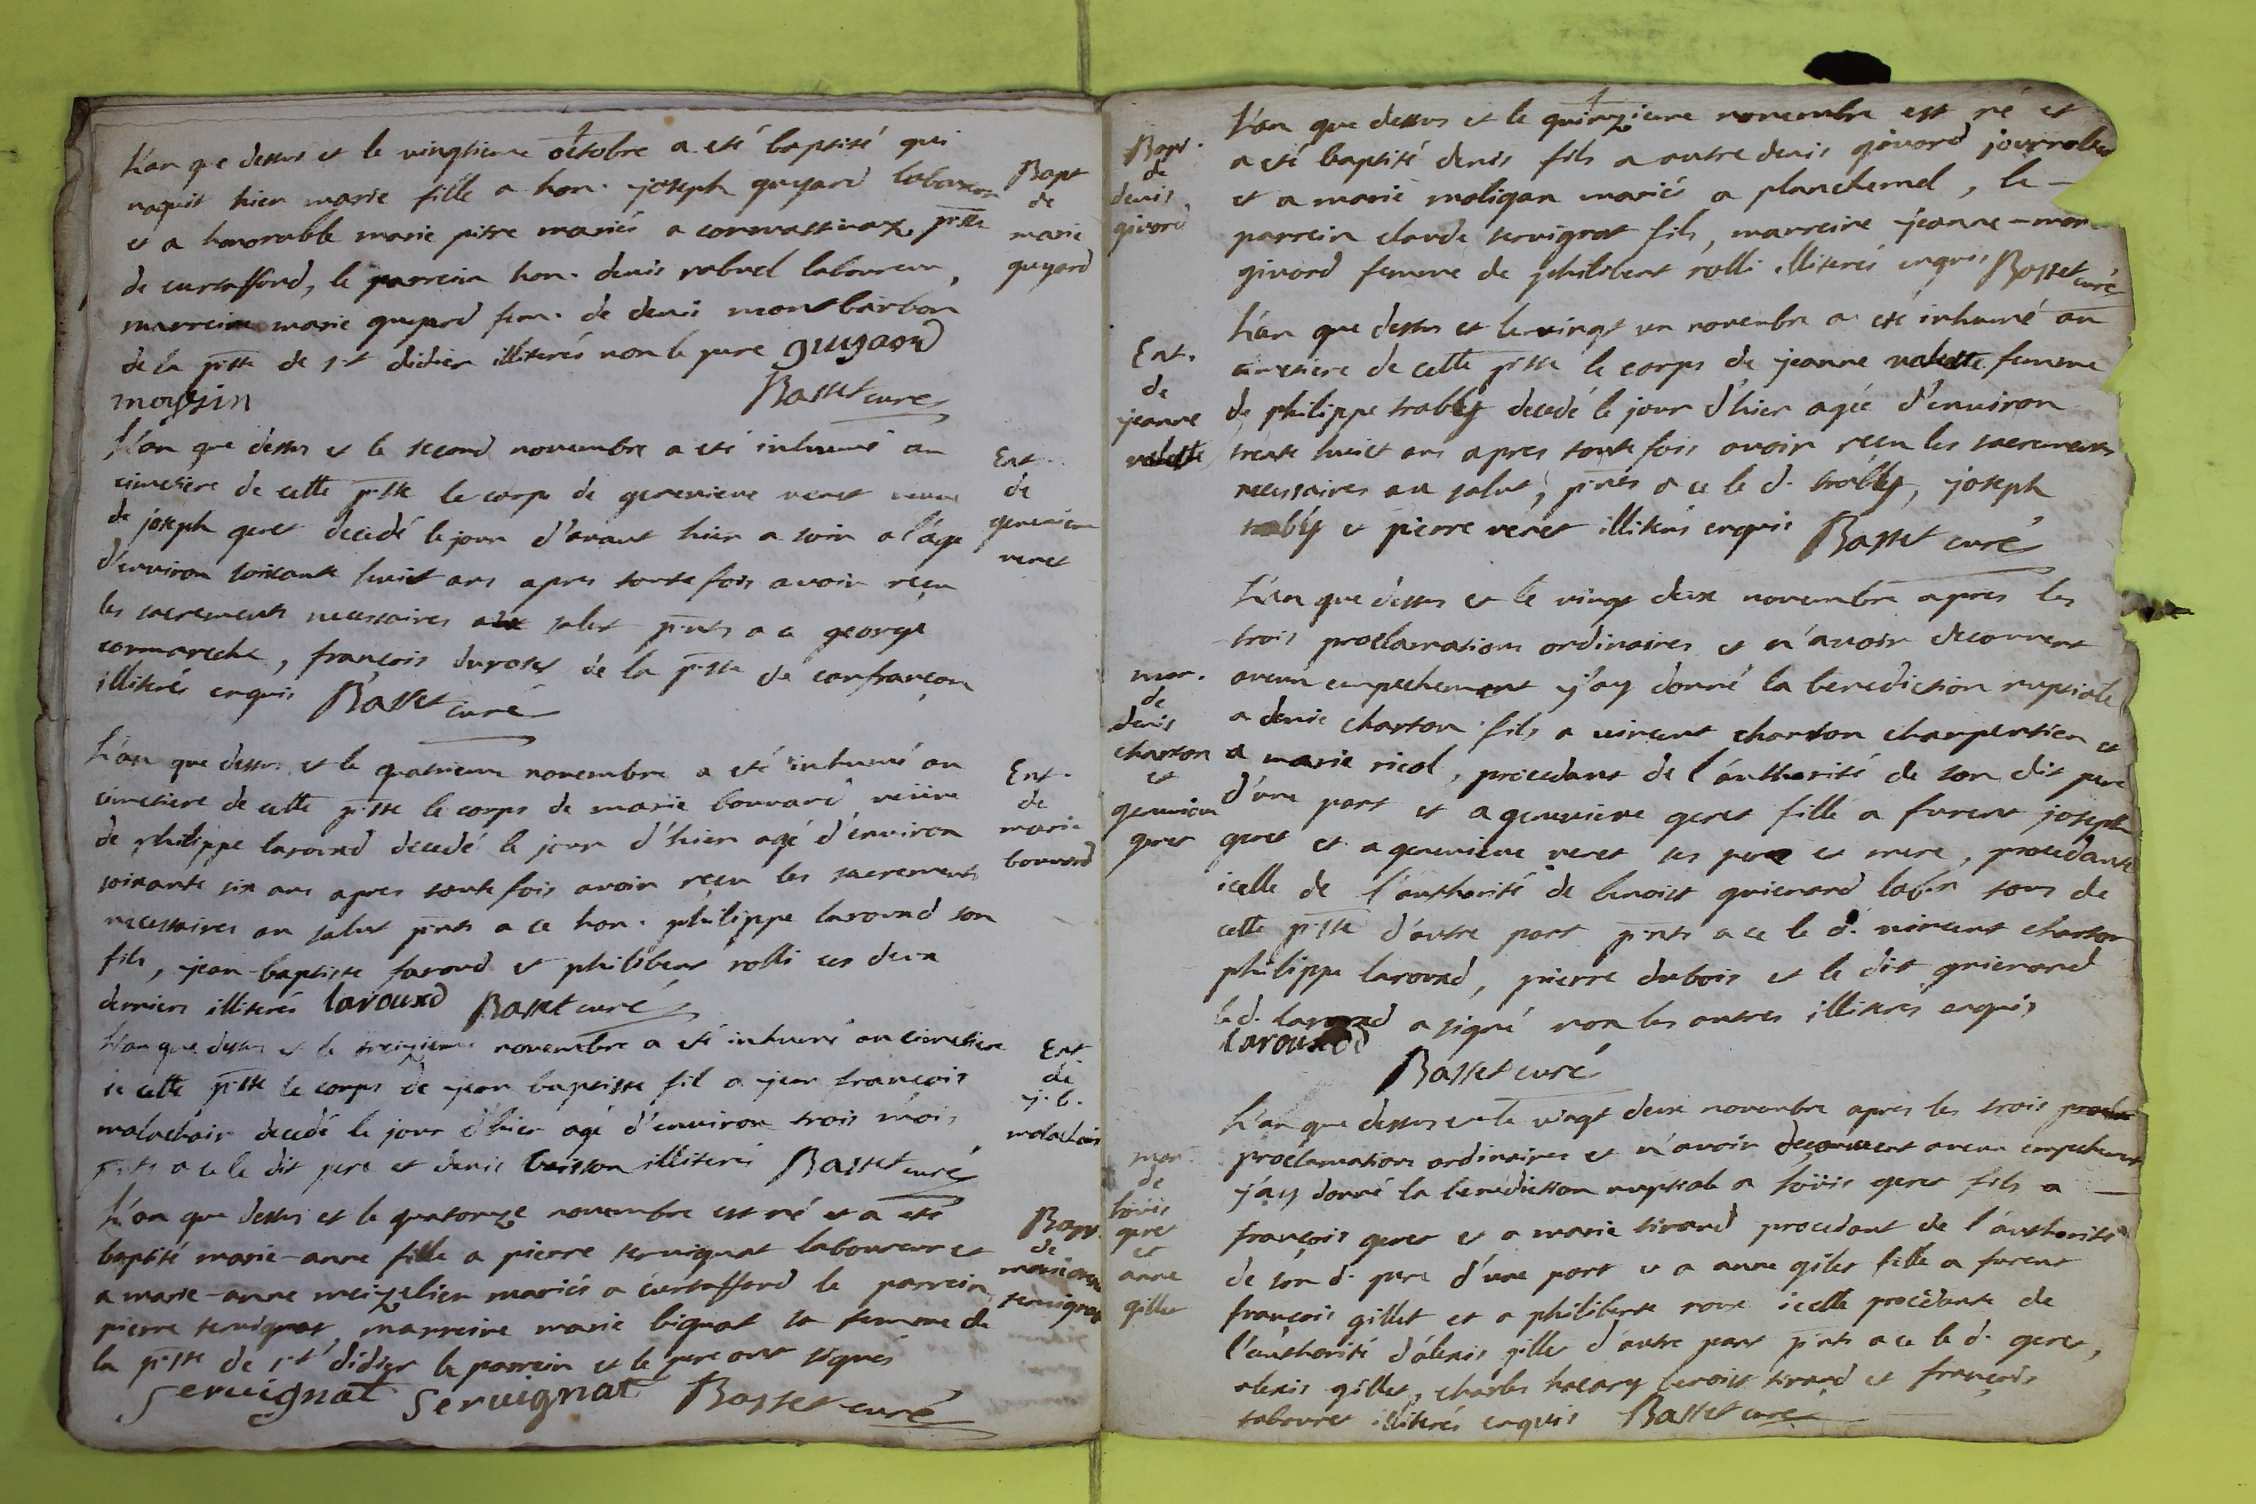 L'an que dessus et le vingtieme octobre a eté baptisé qui
naquit hier marie fille a hon. joseph guyard laboureur
et a honorable marie pitre mariés a cormassinax, p~sse
de curtaffond, le parrein hon. denis rabuel laboureur,
marreine marie guyard fem. de denis montbarbon
de la p~sse de s~t didier illiterés non le pere guyard
moyssin
Basset curé
Bapt
de
marie
guyard
L'an que dessus et le second novembre a eté inhumé au
cimetiere de cette p~sse le corps de genevieve veret veuve
de joseph geret decedé le jour d'avant hier a soir a l'age
d'environ soixante huict ans apres toute fois avoir reçu
les sacrements necessaires au salut p~nts a ce george
cormareche, françois durost de la p~sse de confrançon
illiterés enquis Basset curé
Ent.
de
genevieve
veret
L'an que dessus et le quatrieme novembre a eté inhumé au
cimetiere de cette p~sse le corps de marie bouvard veuve
de philippe laround decedé le jour d'hier agé d'environ
soixante six ans apres toute fois avoir reçu les sacrements
necessaires au salut p~nts a ce hon. philippe laround son
fils, jean-baptiste farond et philibert rolli ces deux
derniers illiterés laround Basset curé
Ent.
de
marie
bouvard
L'an que dessus et le treizieme novembre a eté inhumé au cimetiere
de cette p~sse le corps de jean baptiste fil a jean françois
malachair decedé le jour d'hier agé d'environ trois mois,
p~nts a ce le dit pere et denis buisson illiterés Basset curé
Ent
de
j. b.
malachair
L'an que dessus et le quatorze novembre est né et a eté
baptisé marie-anne fille a pierre servignat laboureur et
a marie-anne meizelier mariés a curtaffond le parrein
pierre servignat, marreine marie bignat sa femme de
la p~sse de s~t didier le parrein et le pere ont signés
Servignat Servignat Basset curé
Bapt.
de
marie anne
servignat
L'an que dessus et le quinzieme novembre est né et
a eté baptisé denis fils a autre denis givord journalier
et a marie maligan mariés a planchemel, le -
parrein claude servignat fils, marreine jeanne-marie
givord femme de philibert rolli illiterés enquis Basset curé
Bapt.
de
denis
givord
L'an que dessus et le vingt un novembre a eté inhumé au
cimetiere de cette p~sse le corps de jeanne valette femme
de philippe trably decedé le jour d'hier agée d'environ
trente huict ans apres toute fois avoir reçu les sacrements
necessaires au salut, p~nts a ce le d. trably, joseph
trably et pierre veret illiterés enquis Basset curé
Ent.
de
jeanne
valette
L'an que dessus et le vingt deux novembre apres les
trois proclamations ordinaires et n'avoir decouvert
aucun empechement j'ay donné la benediction nuptiale
a denis charton fils a vincent charton charpentier et
a marie nicol, procedant de l'authorité de son dit pere
d'une part et a genevieve geret fille a furent joseph
geret et a genevieve veret ses pere et mere, procedante
icelle de l'authorité de benoist grienard lab~r tous de
cette p~sse d'autre part p~nts a ce le d. vincent charton
philippe laround, pierre dubois et le dit grienard
le d. laround a signé non les autres illiterés enquis
laround
Basset curé
mar.
de
denis
charton
et
genevieve
geret
L'an que dessus et le vingt deux novembre apres les trois
proclamations ordinaires et n'avoir decouvert aucun empechement
j'ay donné la benediction nuptiale a loüis geret fils a -
françois geret et a marie tirand procedant de l'authorité
de son d. pere d'une part et a anne gilet fille a furent
françois gillet et a philiberte roux icelle procedante de
l'authorité d'alexis gillet d'autre part p~nts a ce le d. geret,
alexis gillet, charles halary benoist tirand et françois
tabouret illiterés enquis Basset curé
mar.
de
loüis
geret
et
anne
gillet